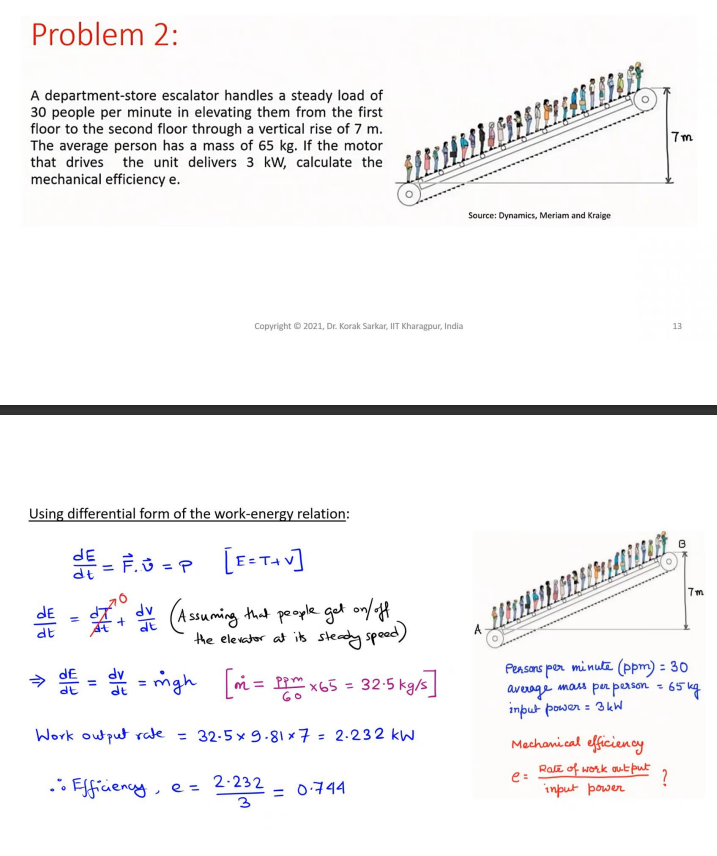 Problem 2:
A department-store escalator handles a steady load of
30 people per minute in elevating them from the first
floor to the second floor through a vertical rise of 7 m.
The average person has a mass of 65 kg. If the motor
that drives the unit delivers 3 kW, calculate the
mechanical efficiency e.
7m
Source: Dynamics, Meriam and Kraige
Copyright © 2021, Dr. Korak Sarkar, IIT Kharagpur, India
13
Using differential form of the work-energy relation:
dE/dt = F⃗.v⃗ = P [E=T+V]
dE/dt = dT/dt→0 + dV/dt (Assuming that people get on/off
the elevator at its steady speed)
⇒ dE/dt = dV/dt = ṁgh [ṁ = ppm/60 ×65 = 32.5 kg/s]
Work output rate = 32.5 × 9.81 × 7 = 2.232 kW
∴ Efficiency, e = 2.232/3 = 0.744
B
7m
A
Persons per minute (ppm) = 30
average mass per person = 65 kg
input power = 3kW
Mechanical efficiency
e = Rate of work output/input power ?